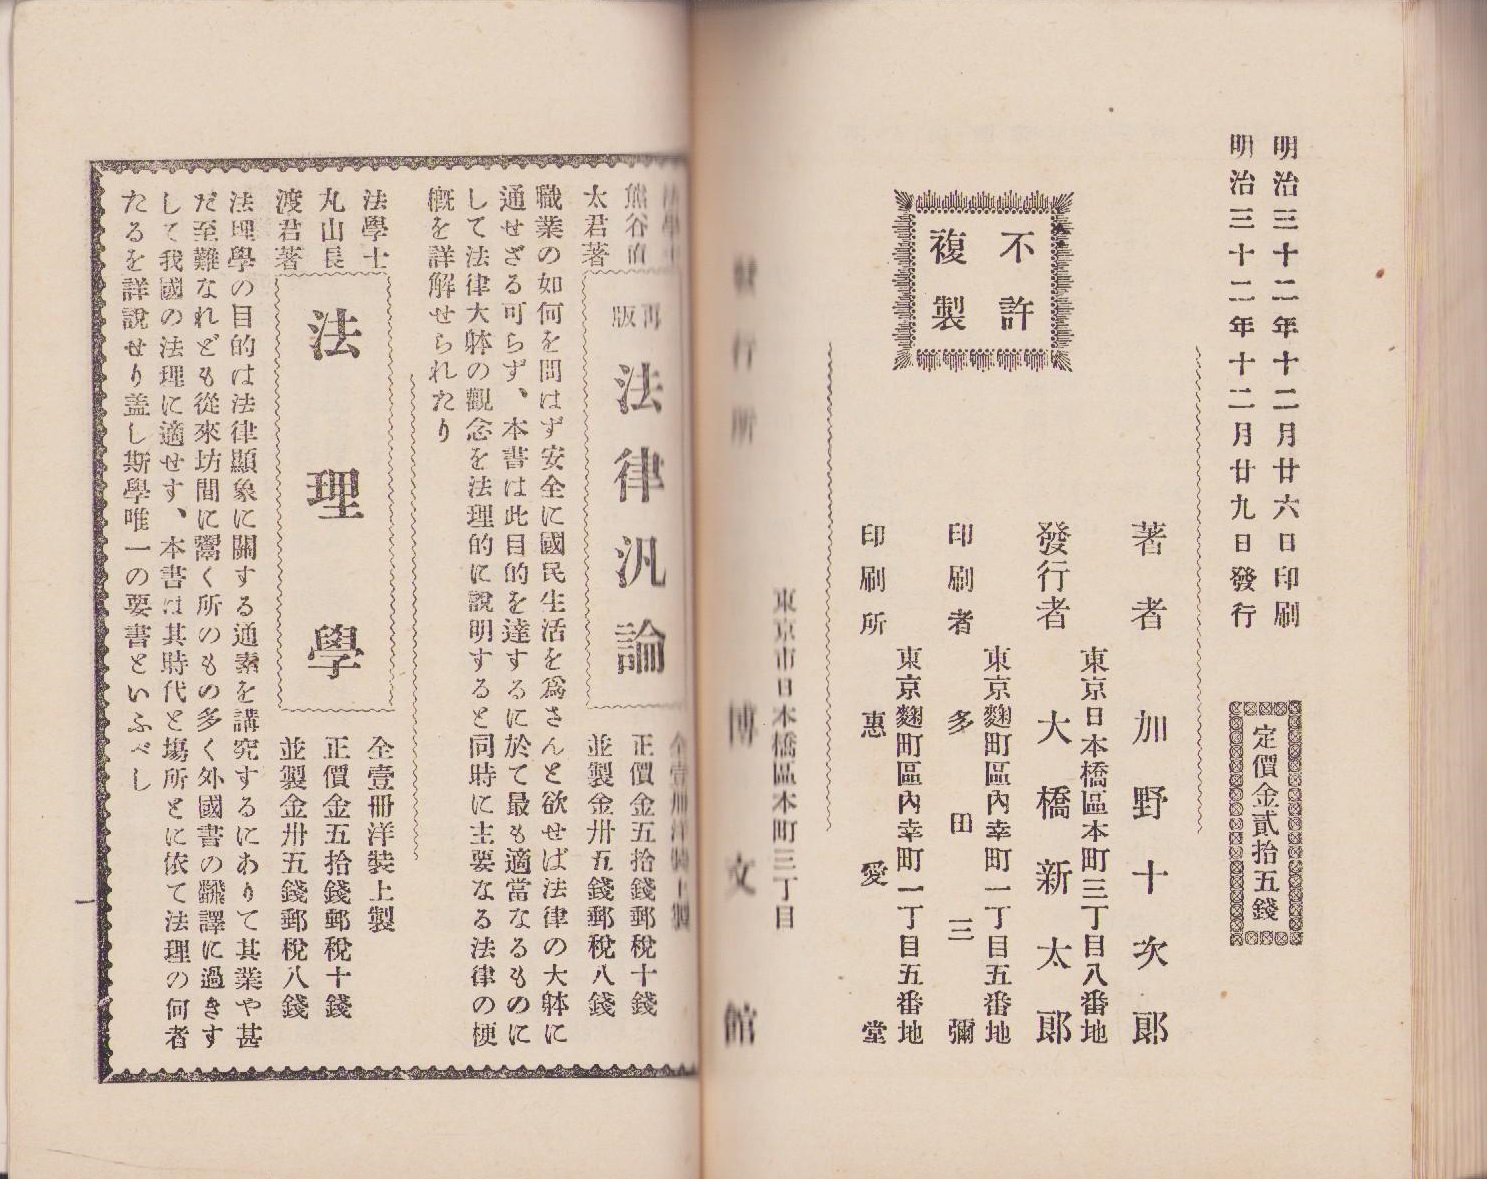 明治三十二年十二月廿六日印刷
明治三十二年十二月廿九日發行
定價金貳拾五錢
不許
複製
著者 加野十次郎
東京日本橋區本町三丁目八番地
發行者 大橋新太郎
東京麴町區內幸町一丁目五番地
印刷者 多田三彌
東京麴町區內幸町一丁目五番地
印刷所 惠愛堂
東京市日本橋區本町三丁目
發行所 博文館
法學士
熊谷直
太君著
再版 法律汎論
全壹冊洋裝上製
正價金五拾錢郵稅十錢
並製金卅五錢郵稅八錢
職業の如何を問はず安全に國民生活を爲さんと欲せば法律の大躰に
通せざる可らず、本書は此目的を達するに於て最も適當なるものに
して法律大躰の觀念を法理的に說明すると同時に主要なる法律の梗
槪を詳解せられたり
法學士
丸山長
渡君著
法理學
全壹冊洋裝上製
正價金五拾錢郵稅十錢
並製金卅五錢郵稅八錢
法理學の目的は法律顯象に關する通素を講究するにありて其業や甚
だ至難なれども從來坊間に鬻く所のもの多く外國書の飜譯に過きす
して我國の法理に適せす、本書は其時代と塲所とに依て法理の何者
たるを詳說せり盖し斯學唯一の要書といふべし
一